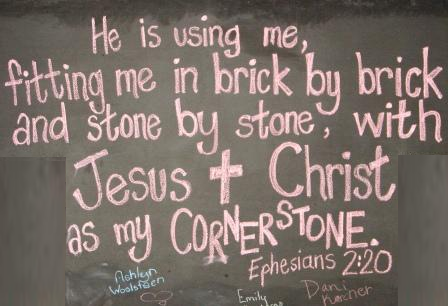 He is using me,
fitting me in brick by brick
and stone by stone, with
Jesus Christ
as my CORNERSTONE.
Ephesians 2:20
Ashlyn
Emily
Dani